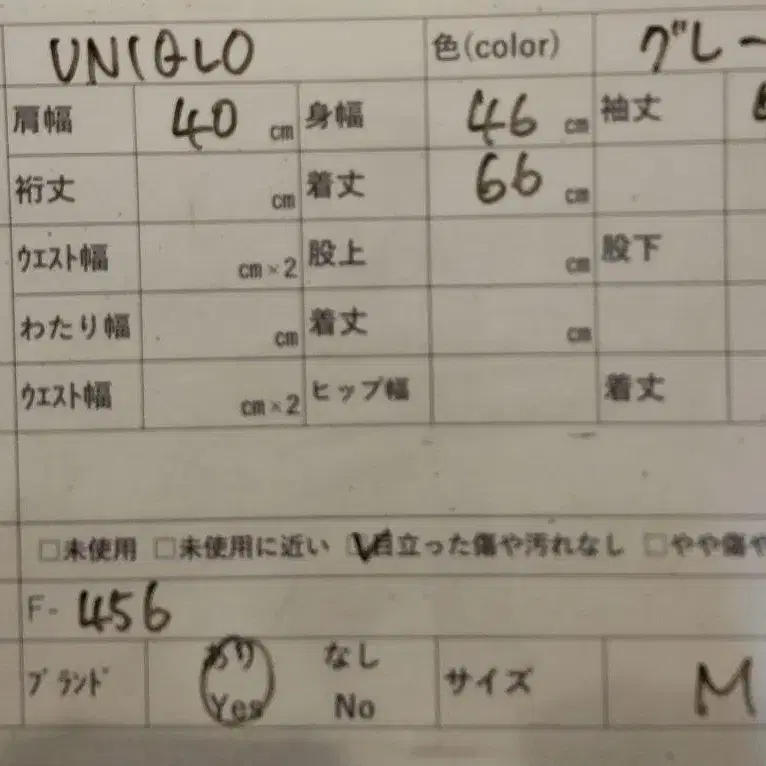 UNIQLO 色(color) グレー
肩幅 40 cm 身幅 46 cm 袖丈
裄丈 cm 着丈 66 cm
ウエスト幅 cm×2 股上 cm 股下
わたり幅 cm 着丈 cm
ウエスト幅 cm×2 ヒップ幅 着丈
□未使用 □未使用に近い ☑目立った傷や汚れなし □やや傷や
F- 456
ブランド あり なし サイズ M
Yes No